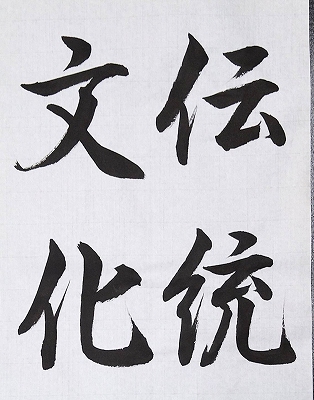 伝統
文化